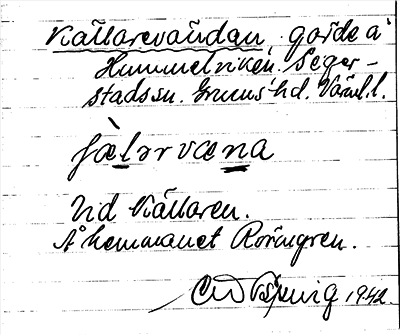 Källarevändan, gärde å
Hummelviken. Seger-
stads sn. Grums hd. Värml. l.
fæ̀lərvæna
Vid Källaren.
Å hemmanet Röringren.
1942.